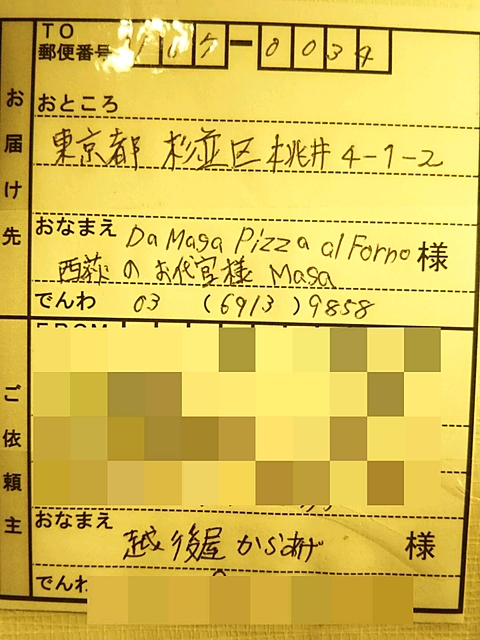 お届け先
TO
郵便番号 167-0034
おところ
東京都 杉並区 桃井 4-1-2
おなまえ Da Masa Pizza al Forno 様
西荻の お代官様 Masa
でんわ 03 (6913) 9858
ご依頼主
おなまえ
越後屋 からあげ 様
でんわ